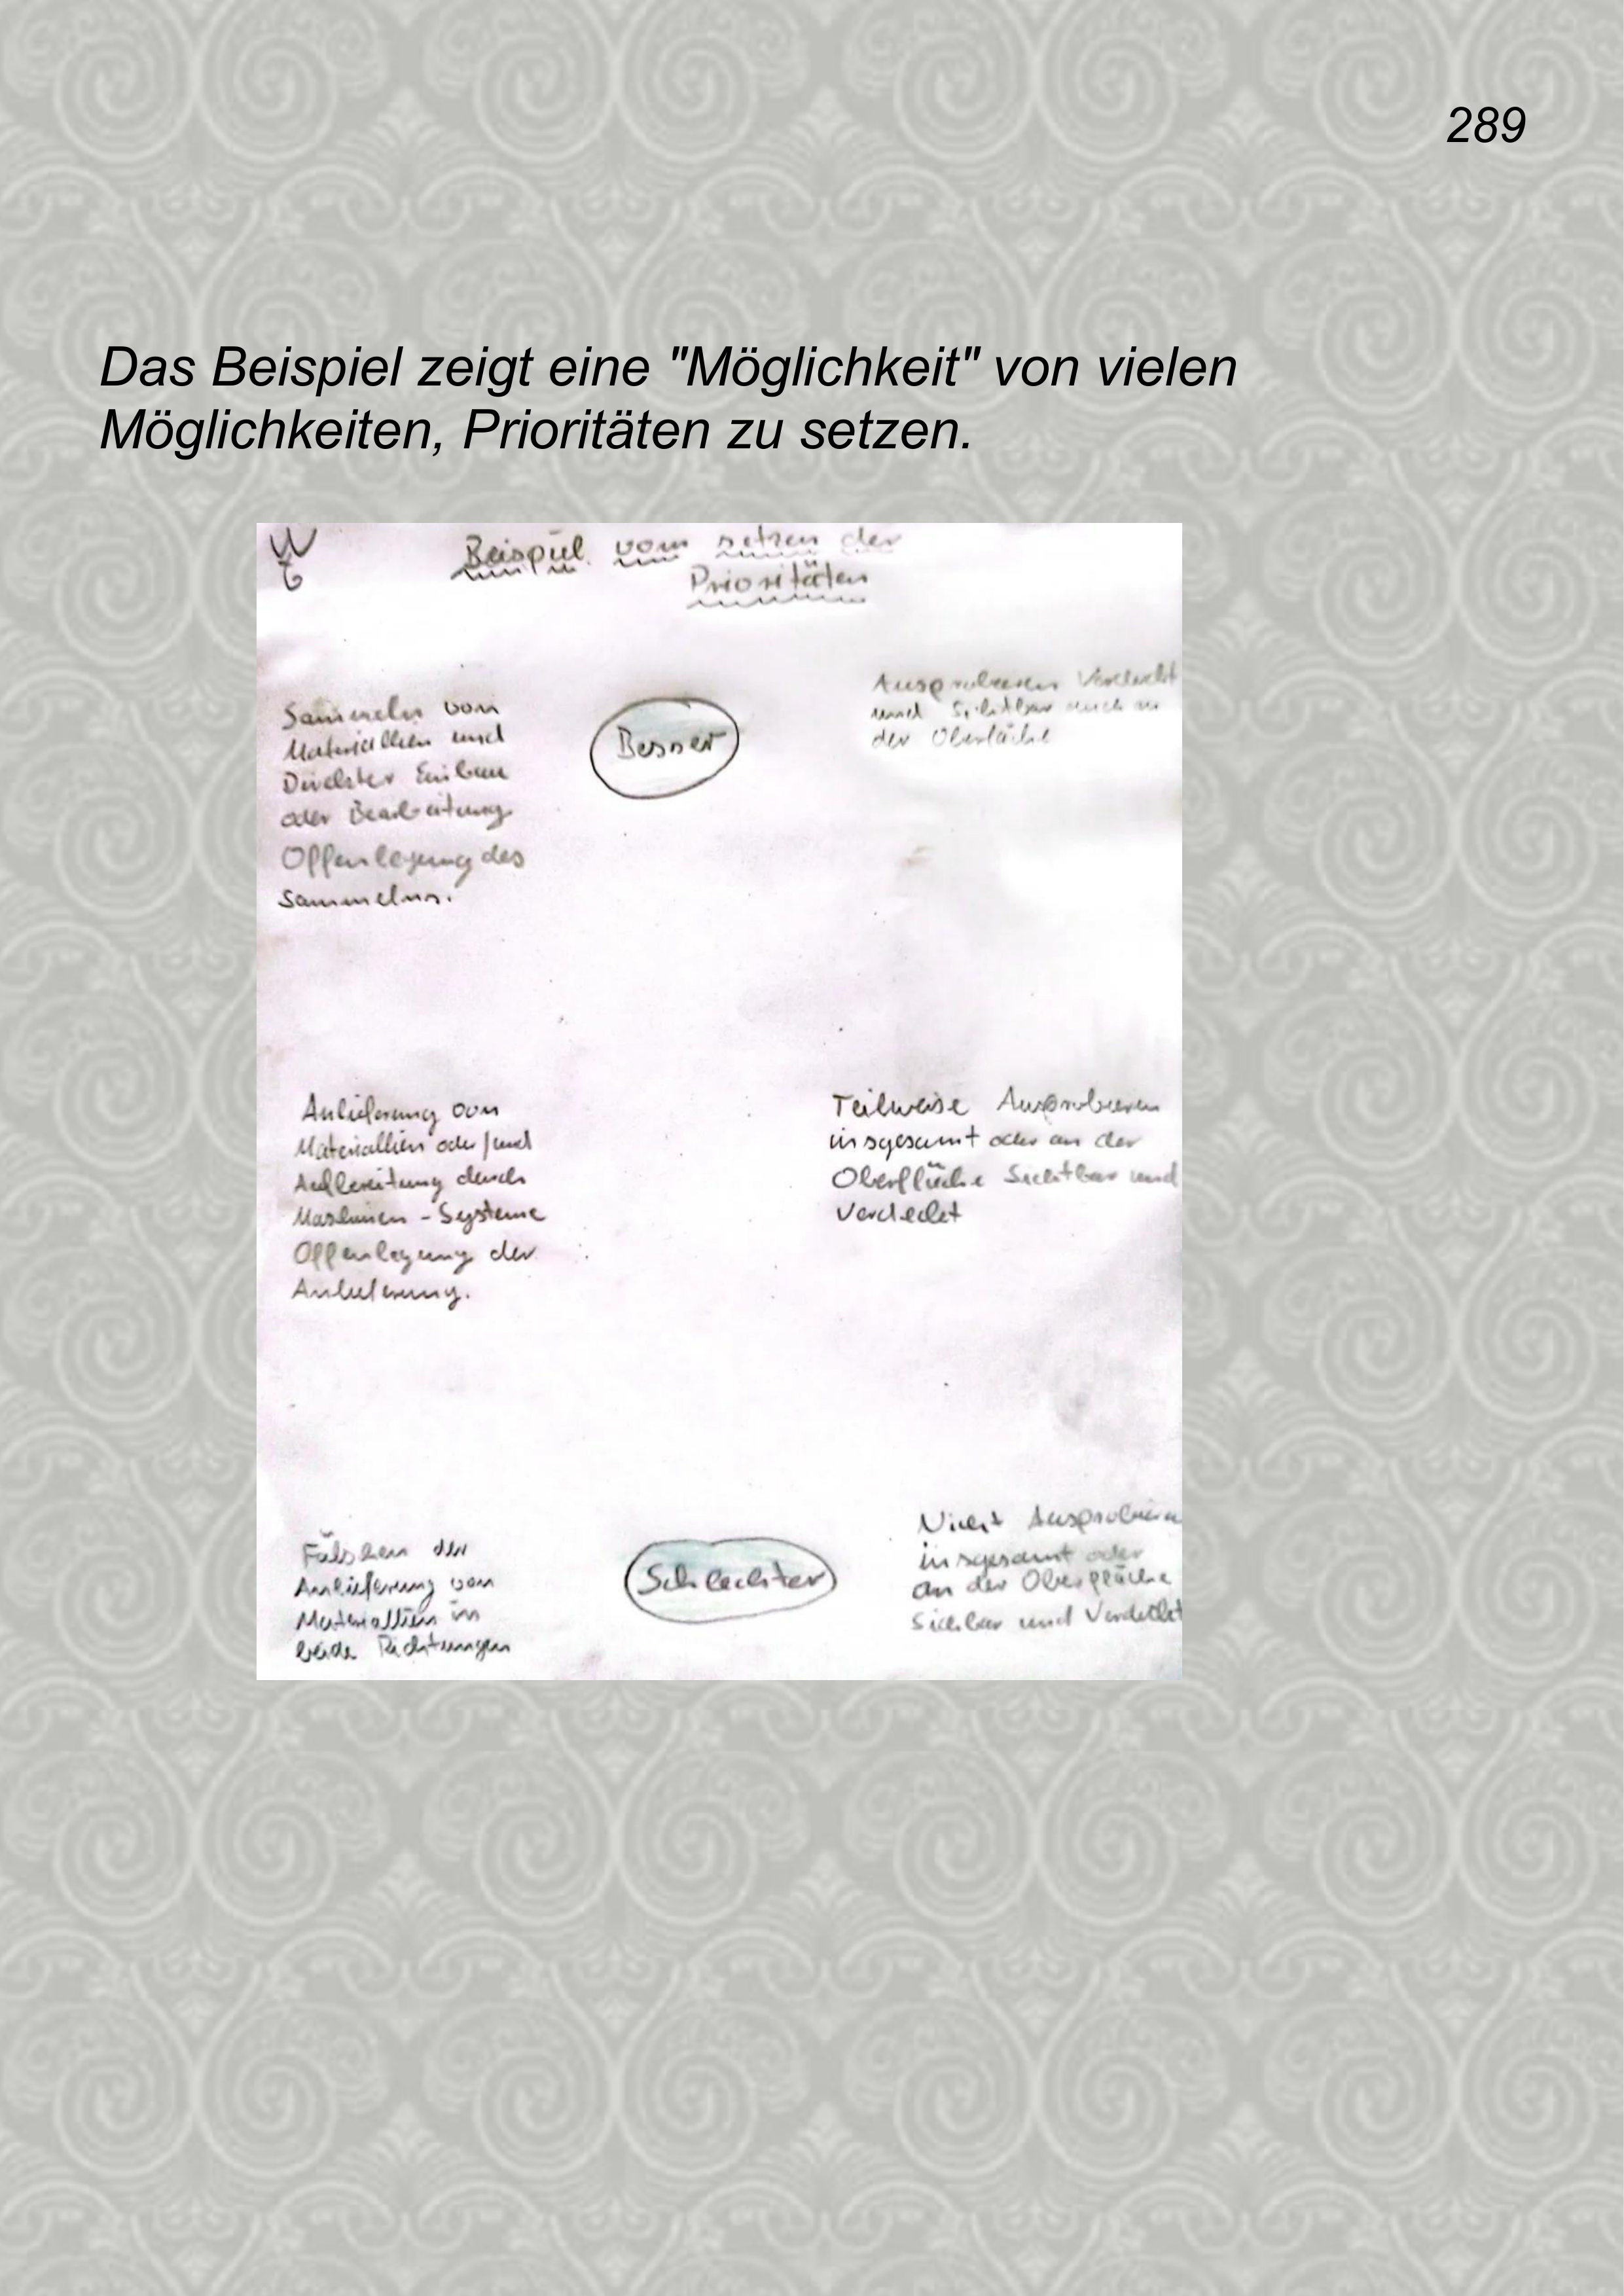 289
Das Beispiel zeigt eine "Möglichkeit" von vielen
Möglichkeiten, Prioritäten zu setzen.
Beispiel vom setzen der
Prioritäten
Sammeln von
Materiallien und
Direkter Einbau
oder Bearbeitung
Offenlegung des
Sammelns.
Besser
Ausprobieren Verdeckt
und Sichtbar auch in
der Oberfläche
Anlieferung von
Materiallien oder/und
Aufbereitung durch
Maschinen - Systeme
Offenlegung der
Anlieferung.
Teilweise Ausprobieren
insgesamt oder an der
Oberfläche Sichtbar und
Verdeckt
Fälschen der
Anlieferung von
Materiallien in
beide Richtungen
Schlechter
Nicht Ausprobieren
insgesamt oder
an der Oberfläche
Sichbar und Verdeckt